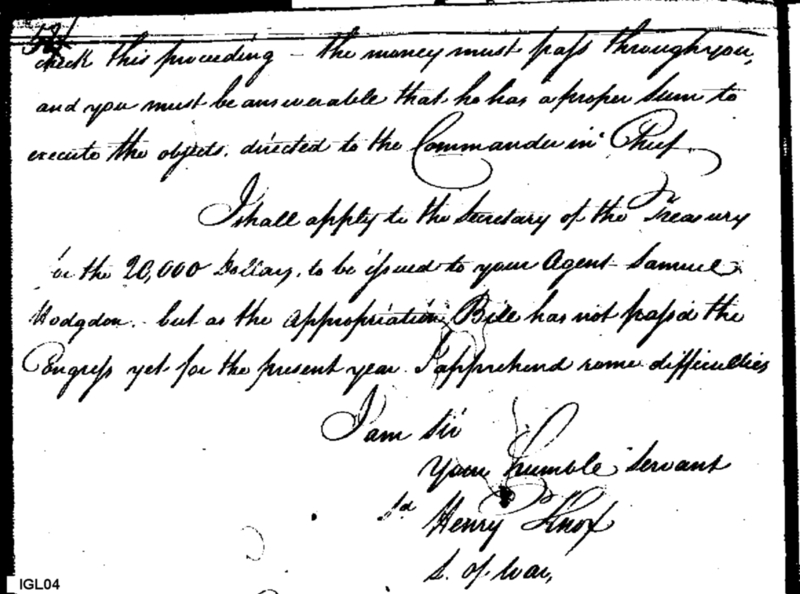 check this proceeding – the money must pass through you,
and you must be answerable that he has a proper sum to
execute the objects. directed to the Commander in Chief.
I shall apply to the Secretary of the Treasury
for the 20,000 Dollars, to be issued to your Agent Samuel
Hodgdon. but as the Appropriation Bill has not pass'd the
Congress yet for the present year. I apprehend some difficulties
I am Sir
Your humble Servant
Sd Henry Knox
S. of War,
IGL04